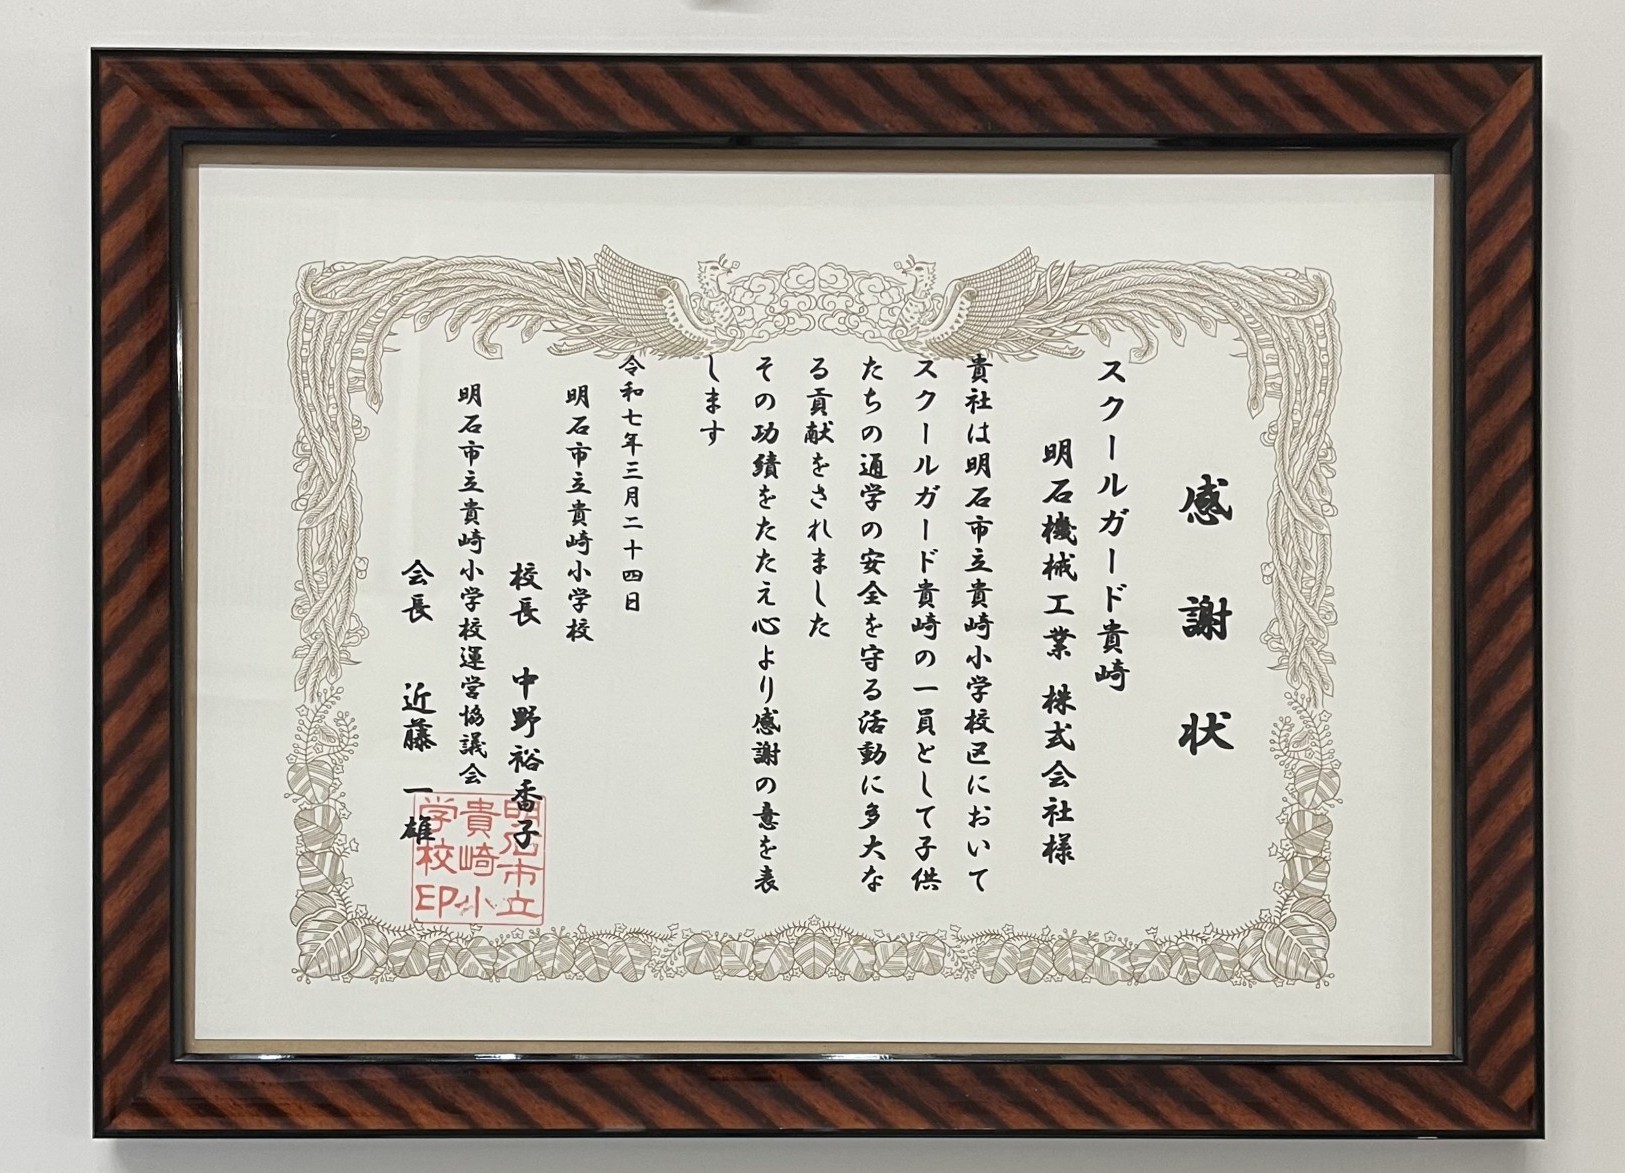 感謝状
スクールガード貴崎
明石機械工業 株式会社様
貴社は明石市立貴崎小学校区において
スクールガード貴崎の一員として子供
たちの通学の安全を守る活動に多大な
る貢献をされました
その功績をたたえ心より感謝の意を表
します
令和七年三月二十四日
明石市立貴崎小学校
校長 中野裕香子
明石市立貴崎小学校運営協議会
会長 近藤一雄
明石市立
貴崎小
学校印